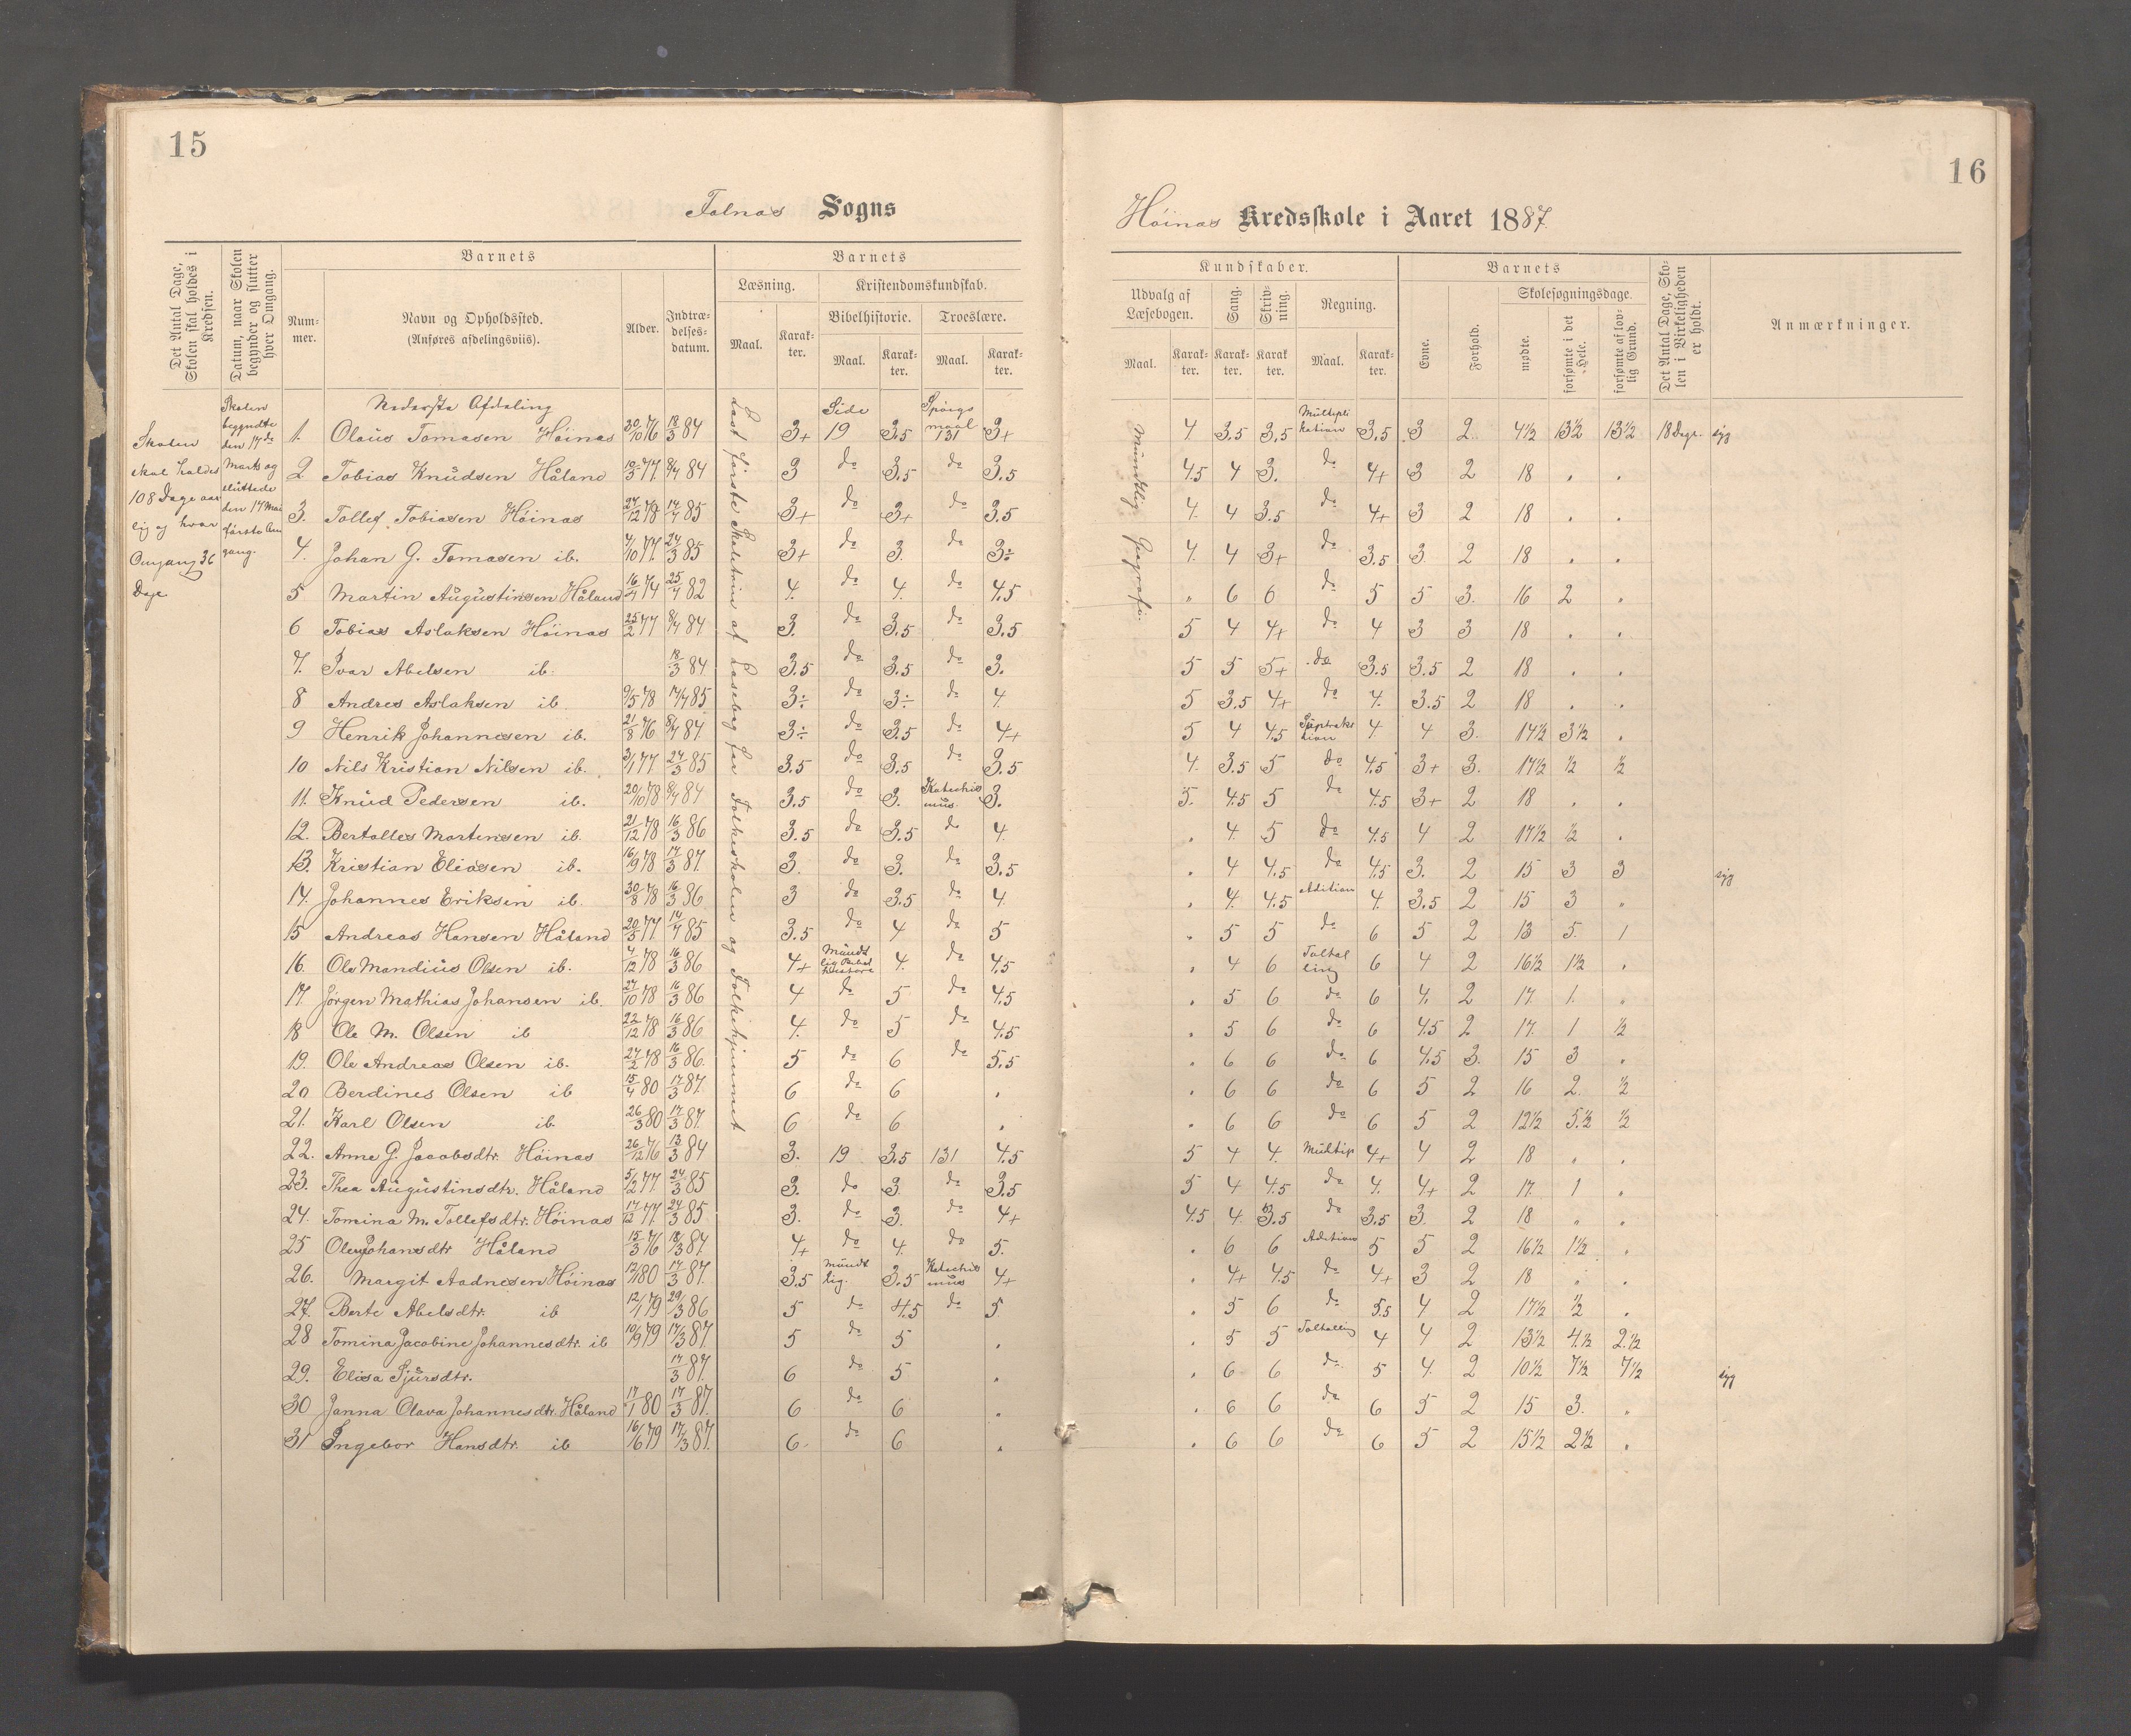 15
16
Falnæs Sogns
Höinæs Kredsskole i Aaret 1887.
Det Antal Dage, Skolen skal holdes i Kredsen.
Datum, naar Skolen begynder og slutter hver Omgang.
Barnets
Nummer.
Navn og Opholdssted.
(Anføres afdelingsviis).
Alder.
Indtrædelsesdatum.
Barnets
Læsning.
Maal.
Karakter.
Kristendomskundskab.
Bibelhistorie.
Maal.
Karakter.
Troeslære.
Maal.
Karakter.
Kundskaber.
Udvalg af Læsebogen.
Maal.
Karakter.
Sang.
Karakter.
Skrivning.
Karakter.
Regning.
Maal.
Karakter.
Barnets
Evne.
Forhold.
Skolesøgningsdage.
mødte.
forsømte i det Hele.
forsømte af lovlig Grund.
Det Antal Dage, Skolen i Virkeligheden er holdt.
Anmærkninger.
Skolen skal holdes 108 Dage aarlig og hver Omgang 36 Dage.
Skolen begyndte den 17de Marts og sluttede den 17 Mai første Omgang.
Nederste Afdeling
Læst første Skoletrin af Læsebog for Folkeskolen og Folkehjemmet
Mundtlig Geografi
1. Olaus Tomasen Höinæs 20/10 76 18/3 84 3+ Side 19 3.5 Spörgsmaal 131 3+ 4 3.5 3.5 Multiplikation 3.5 3 2 4½ 13½ 13½ 18 Dage. syg
2 Tobias Knudsen Håland 10/5 77. 8/4 84 3 do 3.5 do 3.5 4.5 4 3. do 4+ 3 2 18 " "
3. Tollef Tobiasen Höinæs 27/12 78 14/4 85 3+ do 3+ do 3.5 4. 4 3.5 do 4+ 3 2 18 " "
4. Johan G. Tomasen ib. 4/10 77. 24/3 85 3+ do 3 do 3÷ 4. 4 3+ do 3.5 3 2 18 " "
5 Martin Augustinsen Håland 16/4 74 25/4 82 4. do 4. do 4.5 " 6 6 do 5 5 3. 16 2 "
6 Tobias Aslaksen Höinæs 25/2 77 8/4 84 3. do 3.5 do 3.5 5 4 4+ do 4 3 3 18 " "
7. Ivar Abelsen ib. 18/3 84 3.5 do 3.5 do 3. 5 5 5+ do 3.5 3.5 2 18 " "
8 Andres Aslaksen ib. 9/5 78 14/4 85 3÷ do 3÷ do 4. 5 3.5 4+ do 4. 3.5 2 18 " "
9 Henrik Johannesen ib. 21/8 76 8/4 84. 3÷ do 3.5 do 4+ 5 4 4.5 Suptraktion 4 4 3. 14½ 3½ "
10 Nils Kristian Nilsen ib. 3/1 77. 24/3 85 3.5 do 3.5 do 3.5 4. 3.5 5 do 4.5 3+ 3. 17½ ½ ½
11. Knud Pedersen ib. 20/10 78 8/4 84 3.5 do 3. Katechismus. 3. 5. 4.5 5 do 4.5 3+ 2 18 " "
12. Bertolles Martensen ib. 21/12 78 16/3 86 3.5 do 3.5 do 4. " 4. 5 do 4.5 4 2 17½ ½ "
13. Kristian Eliasen ib. 16/9 78 17/3 87. 3. do 3. do 3.5 " 4 4.5 do 4.5 3. 2 15 3 3 syg
14. Johannes Eriksen ib. 30/8 78 16/3 86 3 do 3.5 do 4. " 4. 4.5 Adition 4. 3.5 2 15 3 "
15 Andreas Hansen Håland 20/5 77. 14/4 85 3.5 do 4 do 5 " 5 5 do 6 5 2 13 5. 1
16. Ole Mandius Olsen ib. 4/12 78 16/3 86 4+ Mundtlig Bibelhistorie 4. do 4.5 " 4 6 Taltælling 6 4 2 16½ 1½ "
17. Jörgen Mathias Johansen ib. 27/10 78 16/3 86 4 do 5 do 4.5 " 5 6 do 6 4. 2 17. 1. "
18 Ole M. Olsen ib 22/12 78 16/3 86 4. do 5 do 4.5 " 5 6 do 6 4.5 2 17. 1 ½
19. Ole Andreas Olsen ib. 27/2 78 16/3 86. 5 do 6 do 5.5 " 6 6 do 6 4.5 3. 15 3 "
20 Berdines Olsen ib 15/4 80 17/3 87. 6 do 6 " " 6 6 do 6 5 2 16 2. ½
21. Karl Olsen ib. 26/3 80 17/3 87. 6 do 6 " " 6 6 do 6 5 2 12½ 5.½ ½
22. Anne G. Jacobsdtr. Höinæs 26/12 76 13/3 84 3. 19 3.5 131 4.5 5 4 4. Multip 4+ 4 2 18 " "
23. Thea Augustinsdtr. Håland 5/12 77. 24/3 85 3. do 3 do 3.5 5 4 4.5 do 4. 4+ 2 17. 1 "
24. Tomina M. Tollefsdtr. Höinæs 17/12 77. 24/3 85 3. do 3. do 4+ 4.5 4. 3.5 do 3.5 3. 2 18 " "
25 Olea Johansdtr Håland 15/3 76 18/3 87. 4+ do 4. do 5. " 6 6 Adition 5 5 2 16½ 1½ "
26. Margit Aadnesen Höinæs 12/1 80 17/3 87. 3.5 Mundtlig. 3.5 Katechismus 4+ " 4+ 4.5 do 4+ 3 2 18 " "
27. Berte Abelsdtr. ib 12/1 79 29/3 86 5 do 4.5 do 5 " 5 6 do 5.5 4 2 17½ ½ "
28 Tomina Jacobine Johannesdtr. ib 10/9 79 17/3 87. 5 do 5 " " 5 5 Taltælling 4 4 2 13½ 4.½ 2.½
29. Elisa Sjursdtr. 17/3 87. 6 do 5 " " 6 6 do 5 4. 2 10½ 7½ 7½ syg
30 Janna Olava Johannesdtr. Håland 17/1 80 17/3 87. 6 do 6 " " 6 6 do 6 5 2 15 3. "
31 Ingebor Hansdtr. ib 16/6 79 17/3 87. 6 do 6 " " 6 6 do 6 5 2 15½ 2½ "